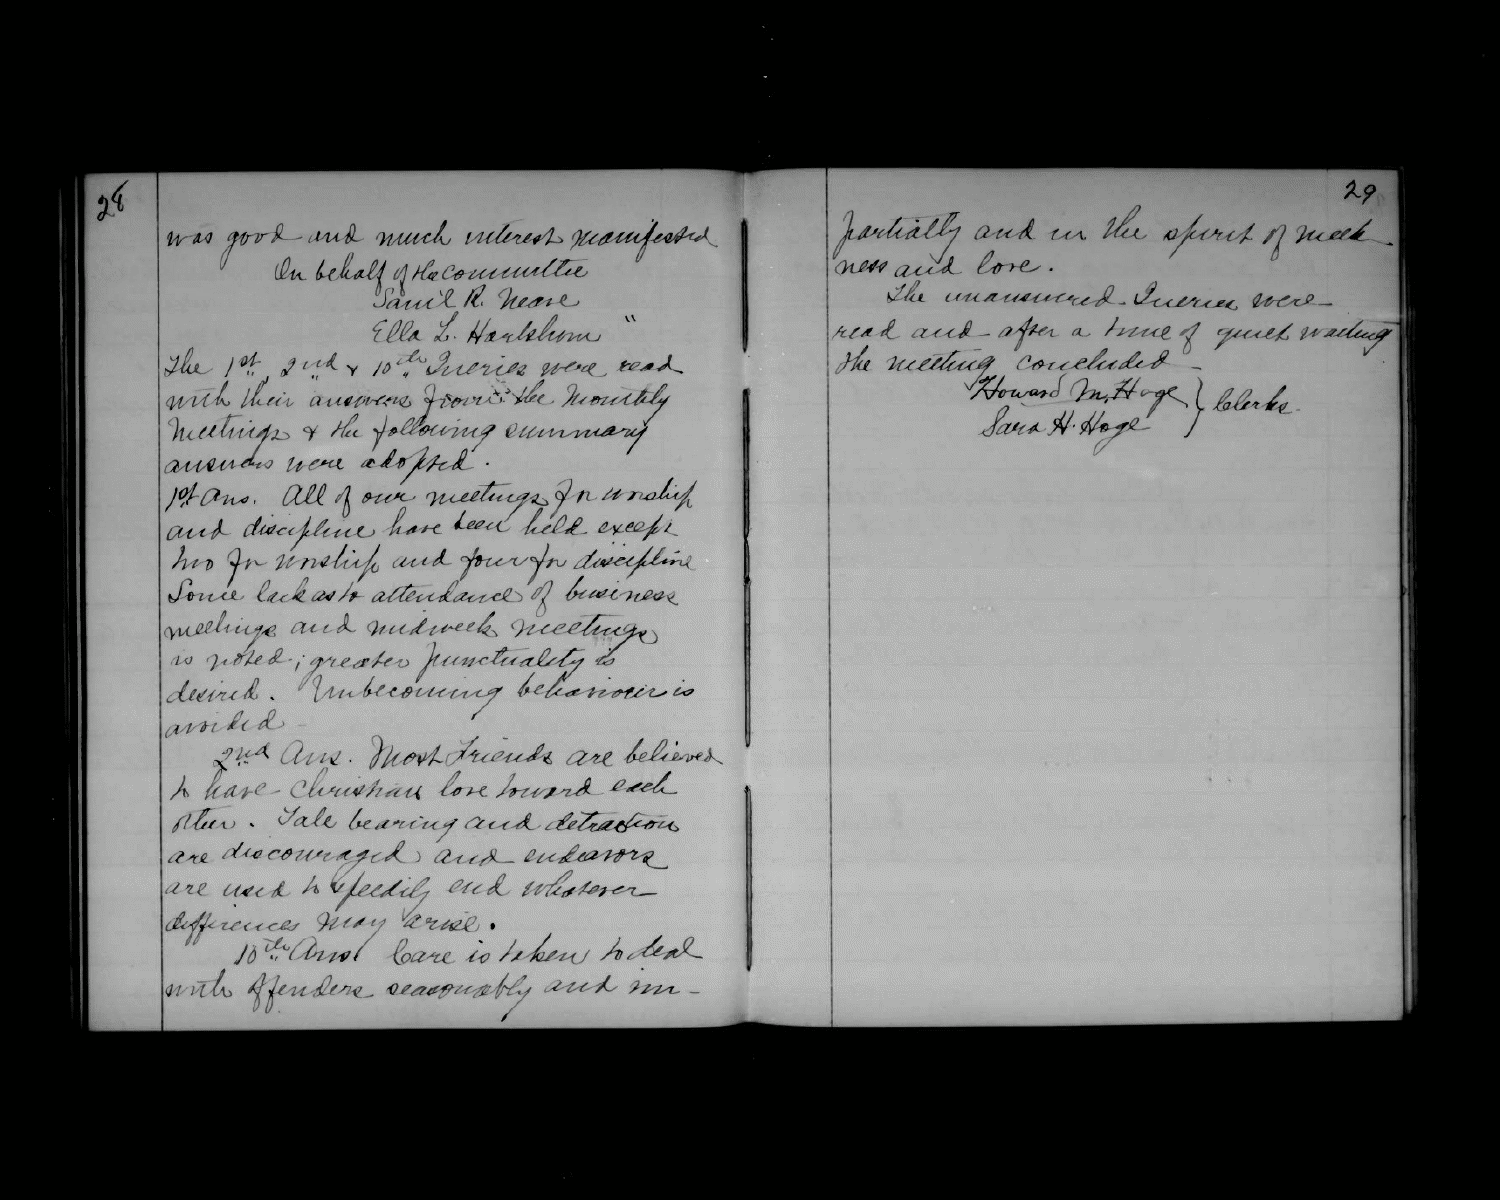 28
was good and much interest manifested
On behalf of the committee
Sam'l R. Neave
Ella L. Hartshorn "
The 1st, 2nd & 10th Queries were read
with their answers from the Monthly
Meetings & the following summary
answers were adopted.
1st Ans. All of our meetings for worship
and discipline have been held except
two for worship and four for discipline
Some lack as to attendance of business
meetings and midweek meetings
is noted; greater punctuality is
desired. Unbecoming behaviour is
avoided
2nd Ans. Most Friends are believed
to have Christian love toward each
other. Tale bearing and detraction
are discouraged and endeavors
are used to speedily end whatever
differences may arise.
10th Ans. Care is taken to deal
with offenders seasonably and im-
29
partially and in the spirit of meek
ness and love.
The unanswered Queries were
read and after a time of quiet waiting
the meeting concluded
Howard M. Hoge } Clerks.
Sara H. Hoge